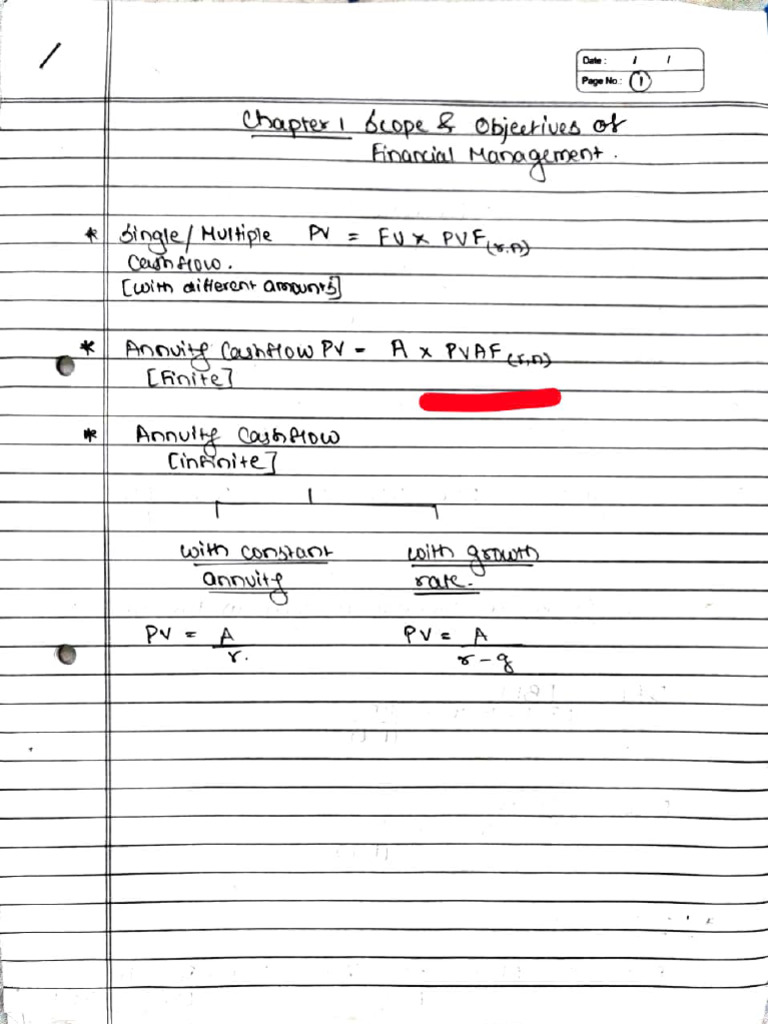 Date: / /
Page No: 1
Chapter 1 Scope & Objectives of
Financial Management.
* Single/Multiple PV = FV x PVF(r,n)
Cashflow.
[with different amounts]
* Annuity Cashflow PV - A x PVAF(r,n)
[Finite]
* Annuity Cashflow
[infinite]
with constant with growth
annuity rate.
PV = A PV = A
r. r-g